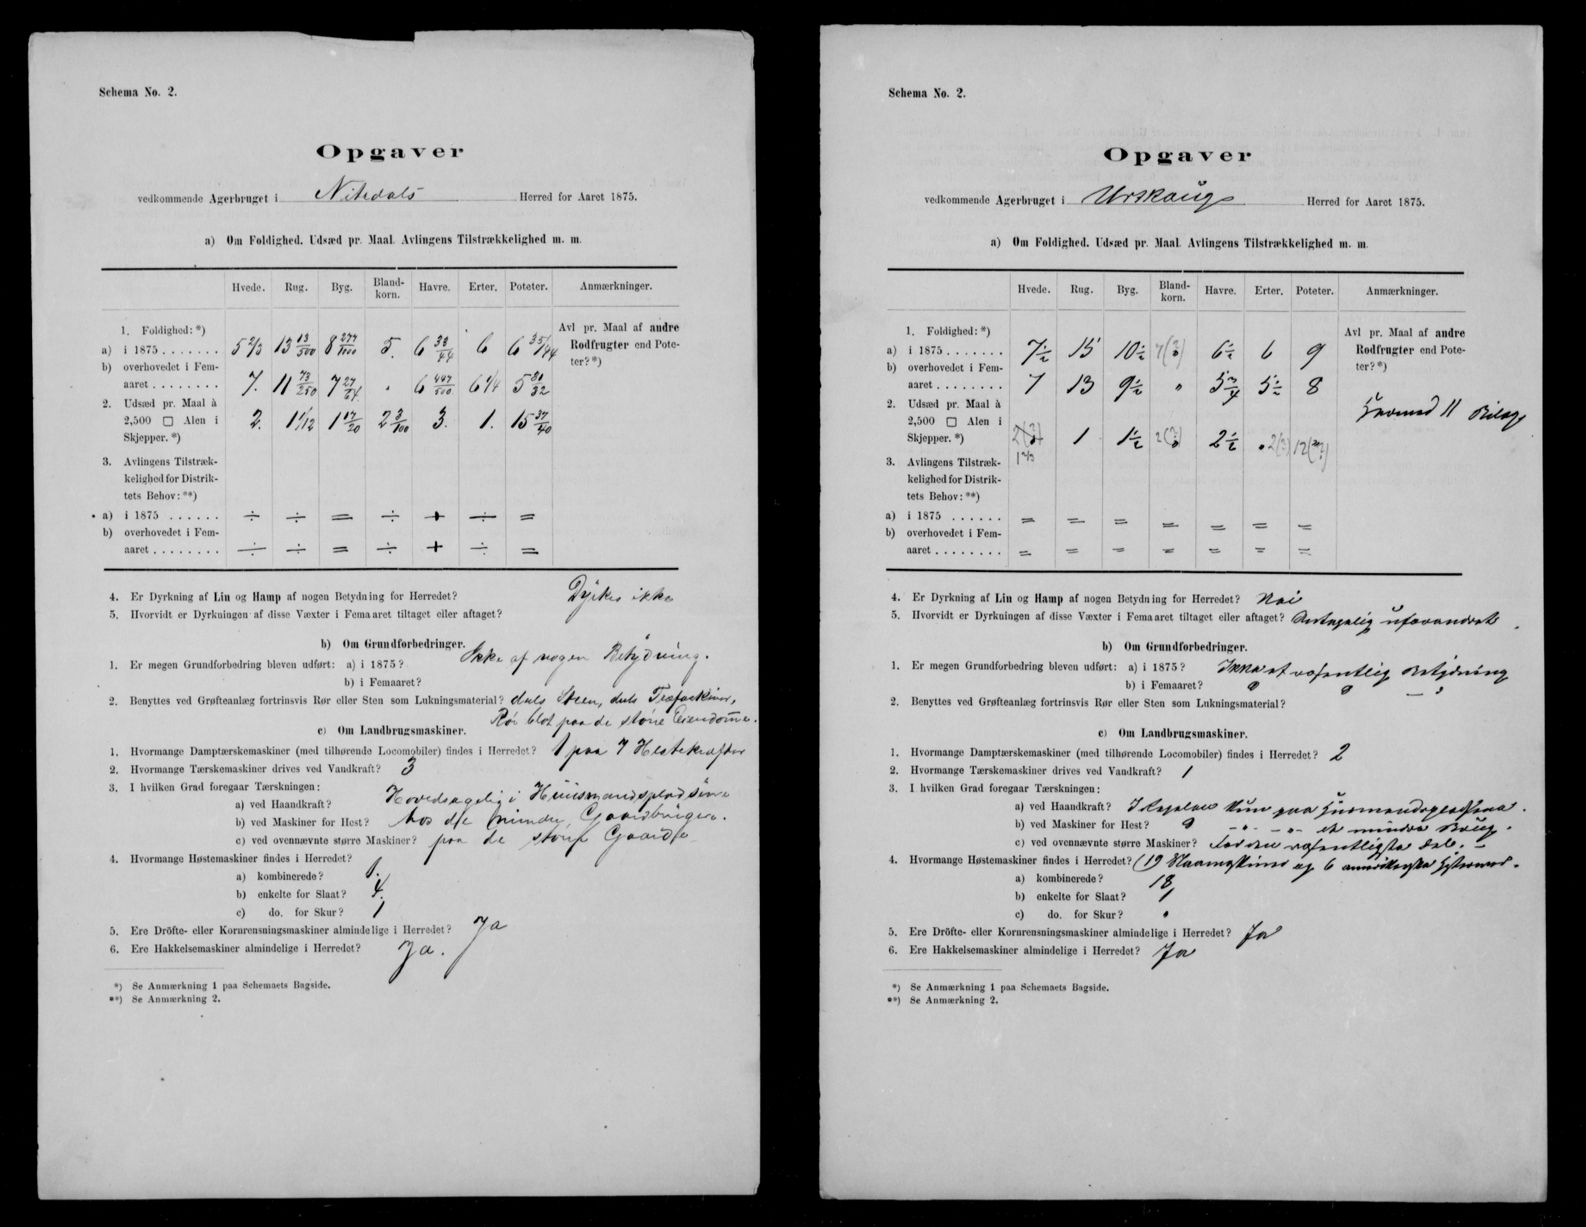 Schema No. 2.
Opgaver
vedkommende Agerbruget i Nitedals Herred for Aaret 1875.
a) Om Foldighed. Udsæd pr. Maal. Avlingens Tilstrækkelighed m. m.
Hvede. Rug. Byg. Bland-korn. Havre. Erter. Poteter. Anmærkninger.
1. Foldighed: *)
Avl pr. Maal af andre
a) i 1875 . . . . . . . 5 2/3 13 13/500 8 277/1000 5. 6 33/44 6 6 35/44 Rodfrugter end Pote-
b) overhovedet i Fem- ter? *)
aaret . . . . . . . . 7. 11 73/250 7 27/64 " 6 447/500 6 1/4 5 31/32
2. Udsæd pr. Maal à
2,500 □ Alen i 2. 1 1/12 1 17/20 2 3/100 3. 1. 15 37/40
Skjepper. *)
3. Avlingens Tilstræk-
kelighed for Distrik-
tets Behov: **)
a) i 1875 . . . . . . ÷ ÷ = ÷ + ÷ =
b) overhovedet i Fem-
aaret . . . . . . . . ÷ ÷ = ÷ + ÷ =
4. Er Dyrkning af Lin og Hamp af nogen Betydning for Herredet? Dyrkes ikke
5. Hvorvidt er Dyrkningen af disse Væxter i Femaaret tiltaget eller aftaget?
b) Om Grundforbedringer.
1. Er megen Grundforbedring bleven udført: a) i 1875? Ikke af nogen Betydning.
b) i Femaaret?
2. Benyttes ved Grøfteanlæg fortrinsvis Rør eller Sten som Lukningsmaterial? dels Steen, dels
Rør blot paa de större Eiendomme.
c) Om Landbrugsmaskiner.
1. Hvormange Damptærskemaskiner (med tilhørende Locomobiler) findes i Herredet? 1 paa 7 Hestekræfter
2. Hvormange Tærskemaskiner drives ved Vandkraft? 3
3. I hvilken Grad foregaar Tærskningen:
a) ved Haandkraft? Hovedsagelig i Huusmandspladsene
b) ved Maskiner for Hest? hos de mindre Gaardbrugere.
c) ved ovennævnte større Maskiner? paa de störe Gaarde
4. Hvormange Høstemaskiner findes i Herredet?
a) kombinerede? 1.
b) enkelte for Slaat? 4.
c) do. for Skur? 1
5. Ere Dröfte- eller Kornrensningsmaskiner almindelige i Herredet? Ja
6. Ere Hakkelsemaskiner almindelige i Herredet? Ja.
*) Se Anmærkning 1 paa Schemaets Bagside.
**) Se Anmærkning 2.
Schema No. 2.
Opgaver
vedkommende Agerbruget i Urskoug Herred for Aaret 1875.
a) Om Foldighed. Udsæd pr. Maal. Avlingens Tilstrækkelighed m. m.
Hvede. Rug. Byg. Bland-korn. Havre. Erter. Poteter. Anmærkninger.
1. Foldighed: *)
Avl pr. Maal af andre
a) i 1875 . . . . . . . 7 1/2 15 10 1/2 7(?) 6 1/2 6 9 Rodfrugter end Pote-
b) overhovedet i Fem- ter? *)
aaret . . . . . . . . 7 13 9 1/2 " 5 3/4 5 1/2 8
2. Udsæd pr. Maal à
2,500 □ Alen i Hermed 11 Bilag
Skjepper. *) 2(?) 1 1 1/2 2(?) 2 1/2 2(?) 12(?)
3. Avlingens Tilstræk- 1 2/3
kelighed for Distrik-
tets Behov: **)
a) i 1875 . . . . . . = = = = = = =
b) overhovedet i Fem-
aaret . . . . . . . . = = = = = = =
4. Er Dyrkning af Lin og Hamp af nogen Betydning for Herredet? Nei
5. Hvorvidt er Dyrkningen af disse Væxter i Femaaret tiltaget eller aftaget? Antagelig uforandret.
b) Om Grundforbedringer.
1. Er megen Grundforbedring bleven udført: a) i 1875? Ikke af væsentlig Betydning
b) i Femaaret? " " — "
2. Benyttes ved Grøfteanlæg fortrinsvis Rør eller Sten som Lukningsmaterial?
c) Om Landbrugsmaskiner.
1. Hvormange Damptærskemaskiner (med tilhørende Locomobiler) findes i Herredet? 2
2. Hvormange Tærskemaskiner drives ved Vandkraft? 1
3. I hvilken Grad foregaar Tærskningen:
a) ved Haandkraft? I Regelen kun paa Husmandspladsene.
b) ved Maskiner for Hest? " -"- -"- et mindre Brug.
c) ved ovennævnte større Maskiner? For den væsentligste Del.
4. Hvormange Høstemaskiner findes i Herredet? (19 Slaamaskiner og 6 amerikanske
a) kombinerede? 18
b) enkelte for Slaat? 1
c) do. for Skur? "
5. Ere Dröfte- eller Kornrensningsmaskiner almindelige i Herredet? Ja
6. Ere Hakkelsemaskiner almindelige i Herredet? Ja
*) Se Anmærkning 1 paa Schemaets Bagside.
**) Se Anmærkning 2.